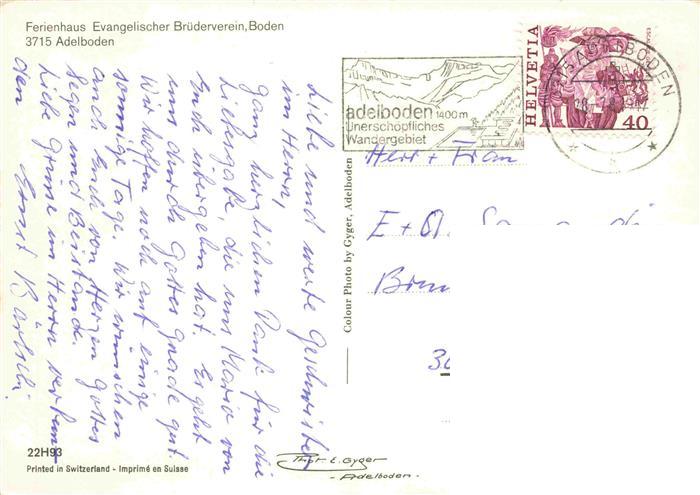 Ferienhaus Evangelischer Brüderverein, Boden
3715 Adelboden
Liebe und werte Geschwister
im Herrn,
ganz herzlichen Dank für die
Liebesgabe, die uns Maria von
Euch übergeben hat. Es geht
uns durch Gottes Gnade gut.
Wir hoffen noch auf einige
sonnige Tage. Wir wünschen
auch Euch von Herzen Gottes
Segen und Beistand.
Liebe Grüsse im Herrn verbun-
den Ernst
adelboden 1400m
Unerschöpfliches
Wandergebiet
HELVETIA
40
ADELBODEN
Herr + Frau
E + A.
Colour Photo by Gyger, Adelboden
22H93
Printed in Switzerland - Imprimé en Suisse
Phot. E. Gyger
- Adelboden -